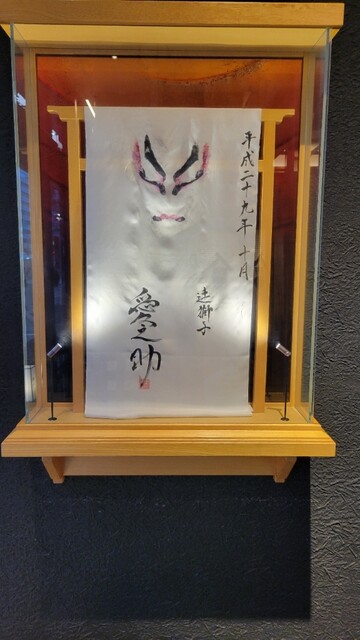 平成二十九年 十月
連獅子
愛之助